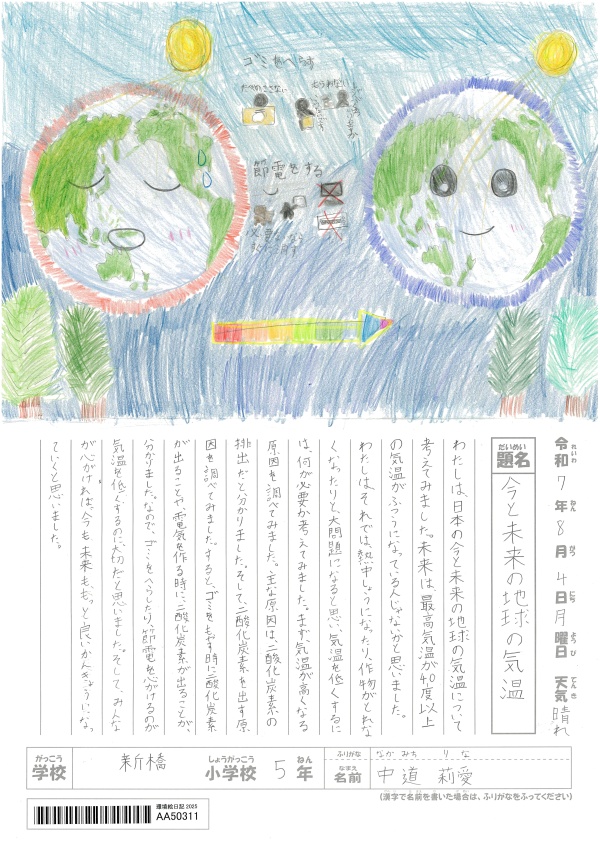 ゴミをへらす
節電をする
令和7年8月4日月曜日 天気 晴れ
れいわ ねん がつ にち ようび てんき
だいめい
題名
今と未来の地球の気温
わたしは、日本の今と未来の地球の気温について
考えてみました。未来は、最高気温が40度以上
の気温がふつうになっている人じゃないかと思いました。
わたしはそれでは、熱中しょうになったり、作物がとれな
くなったりと、大問題になると思い、気温を低くするに
は、何が必要か考えてみました。まず、気温が高くなる
原因を調べてみました。主な原因は、二酸化炭素の
排出だと分かりました。そして、二酸化炭素を出す原
因を調べてみました。すると、ゴミをもやす時に二酸化炭素
が出ることや、電気を作る時に、二酸化炭素が出ることが、
分かりました。なので、ゴミをへらしたり、節電を心がけるのが
気温を低くするのに大切だと思いました。そして、みんな
が心がければ、今も未来も、もっと良いかんきょうにな、
ていくと思いました。
がっこう
学校
新橋
しょうがっこう
小学校
5
ねん
年
ふりがな
なかみち りな
なまえ
名前
中道 莉愛
(漢字で名前を書いた場合は、ふりがなをふってください)
環境絵日記 2025
AA50311